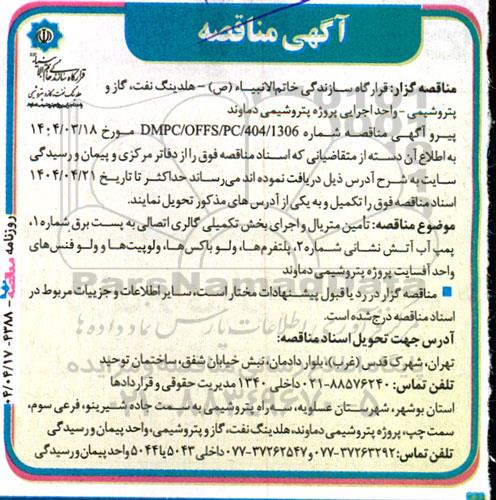 آگهی مناقصه
قرارگاه سازندگی خاتم الانبیاء
هلدینگ نفت، گاز و پتروشیمی
مناقصه گزار: قرارگاه سازندگی خاتم‌الانبیاء (ص) - هلدینگ نفت، گاز و
پتروشیمی - واحد اجرایی پروژه پتروشیمی دماوند
پیرو آگهی مناقصه شماره DMPC/OFFS/PC/404/1306 مورخ ۱۴۰۴/۰۳/۱۸
به اطلاع آن دسته از متقاضیانی که اسناد مناقصه فوق را از دفاتر مرکزی و پیمان و رسیدگی
سایت به شرح آدرس ذیل دریافت نموده اند می‌رساند حداکثر تا تاریخ ۱۴۰۴/۰۴/۲۱
اسناد مناقصه فوق را تکمیل و به یکی از آدرس های مذکور تحویل نمایند.
موضوع مناقصه: تأمین متریال و اجرای بخش تکمیلی گالری اتصالی به پست برق شماره۱،
پمپ آب آتش نشانی شماره۲، پلتفرم‌ها، ولو باکس‌ها، ولوپیت‌ها و ولو فنس‌های
واحد آفسایت پروژه پتروشیمی دماوند
■ مناقصه گزار در رد یا قبول پیشنهادات مختار است، سایر اطلاعات و جزییات مربوط در
اسناد مناقصه درج شده است.
آدرس جهت تحویل اسناد مناقصه:
تهران، شهرک قدس (غرب)، بلوار دادمان، نبش خیابان شفق، ساختمان توحید
تلفن تماس: ۸۸۵۷۶۲۴۰-۰۲۱ داخلی ۱۳۴۰ مدیریت حقوقی و قراردادها
استان بوشهر، شهرستان عسلویه، سه راه پتروشیمی به سمت جاده شیرینو، فرعی سوم،
سمت چپ، پروژه پتروشیمی دماوند، هلدینگ نفت، گاز و پتروشیمی، واحد پیمان و رسیدگی
تلفن تماس: ۳۷۲۶۳۲۹۲-۰۷۷ و ۳۷۲۶۲۵۴۷-۰۷۷ داخلی ۵۰۴۳ یا ۵۰۴۴ واحد پیمان و رسیدگی
روزنامه مناقصه - ۴۳۸۸ - ۰۴/۰۴/۱۷
ParsNamadData